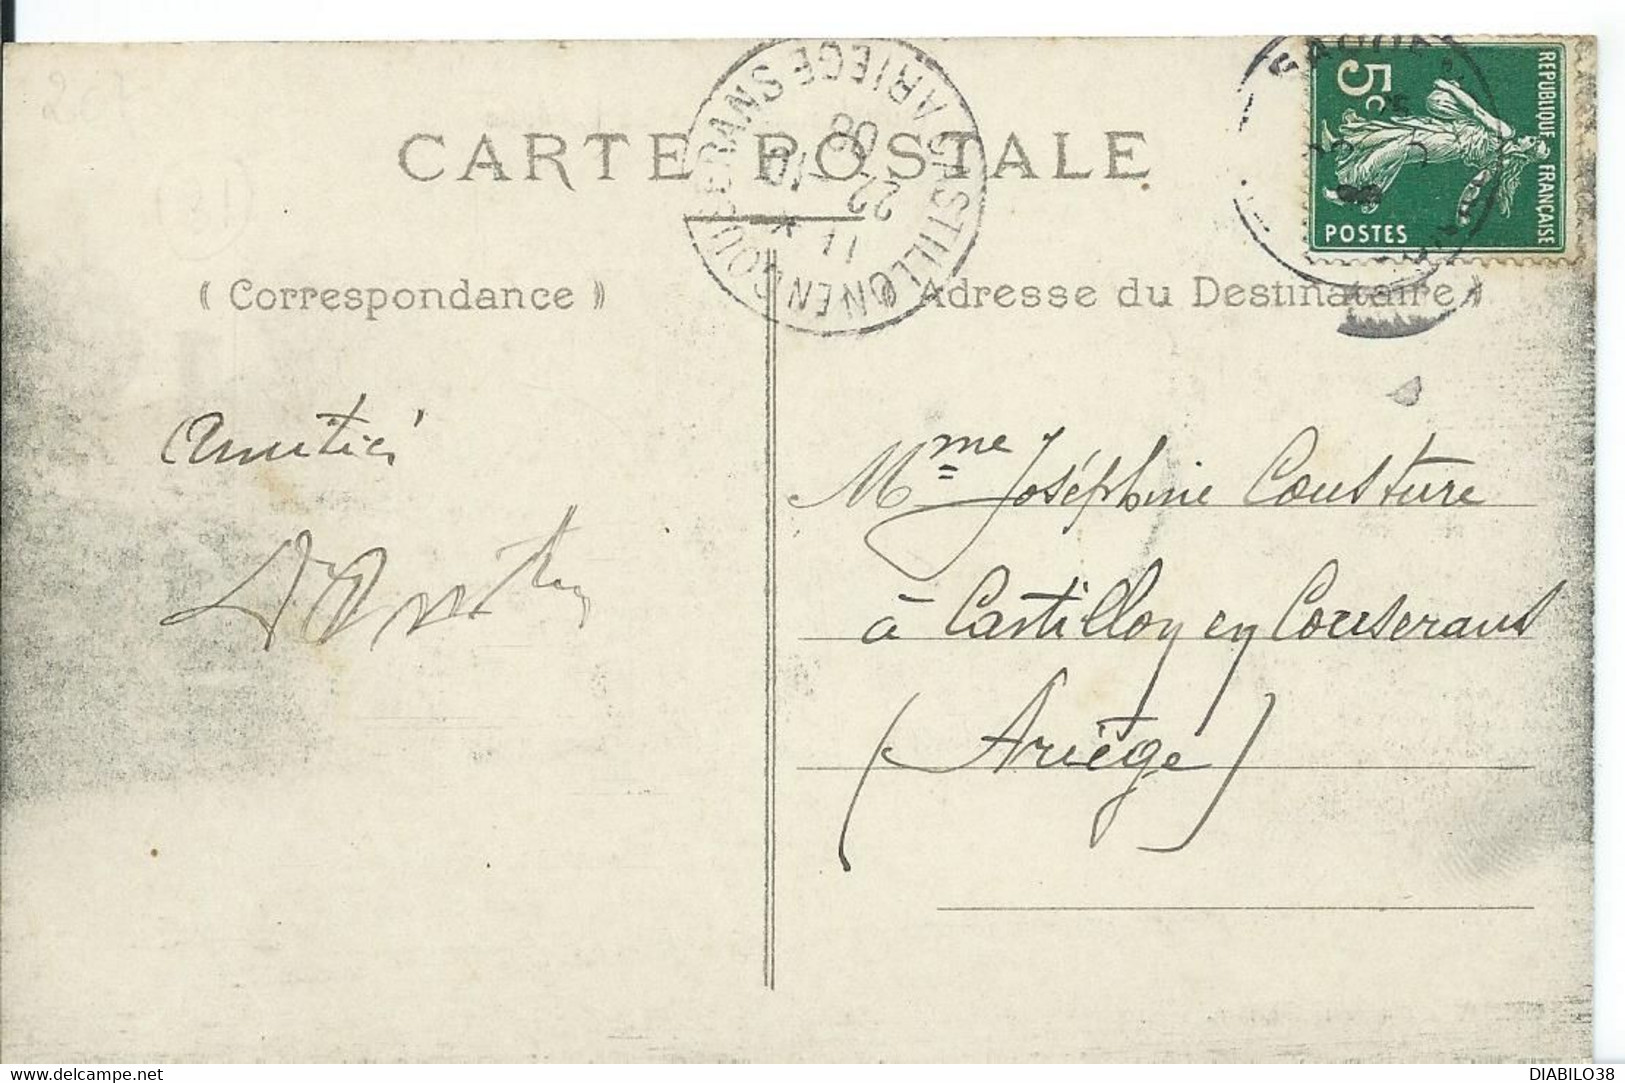 CARTE POSTALE
CASTILLON EN COUSERANS ARIEGE
11
22
10
08
5c
REPUBLIQUE FRANÇAISE
POSTES
( Correspondance )
( Adresse du Destinataire )
Amitiés
Mme Joséphine Cousture
à Castillon en Couserans
(Ariège)
DELCAMPE.NET
DIABILO38